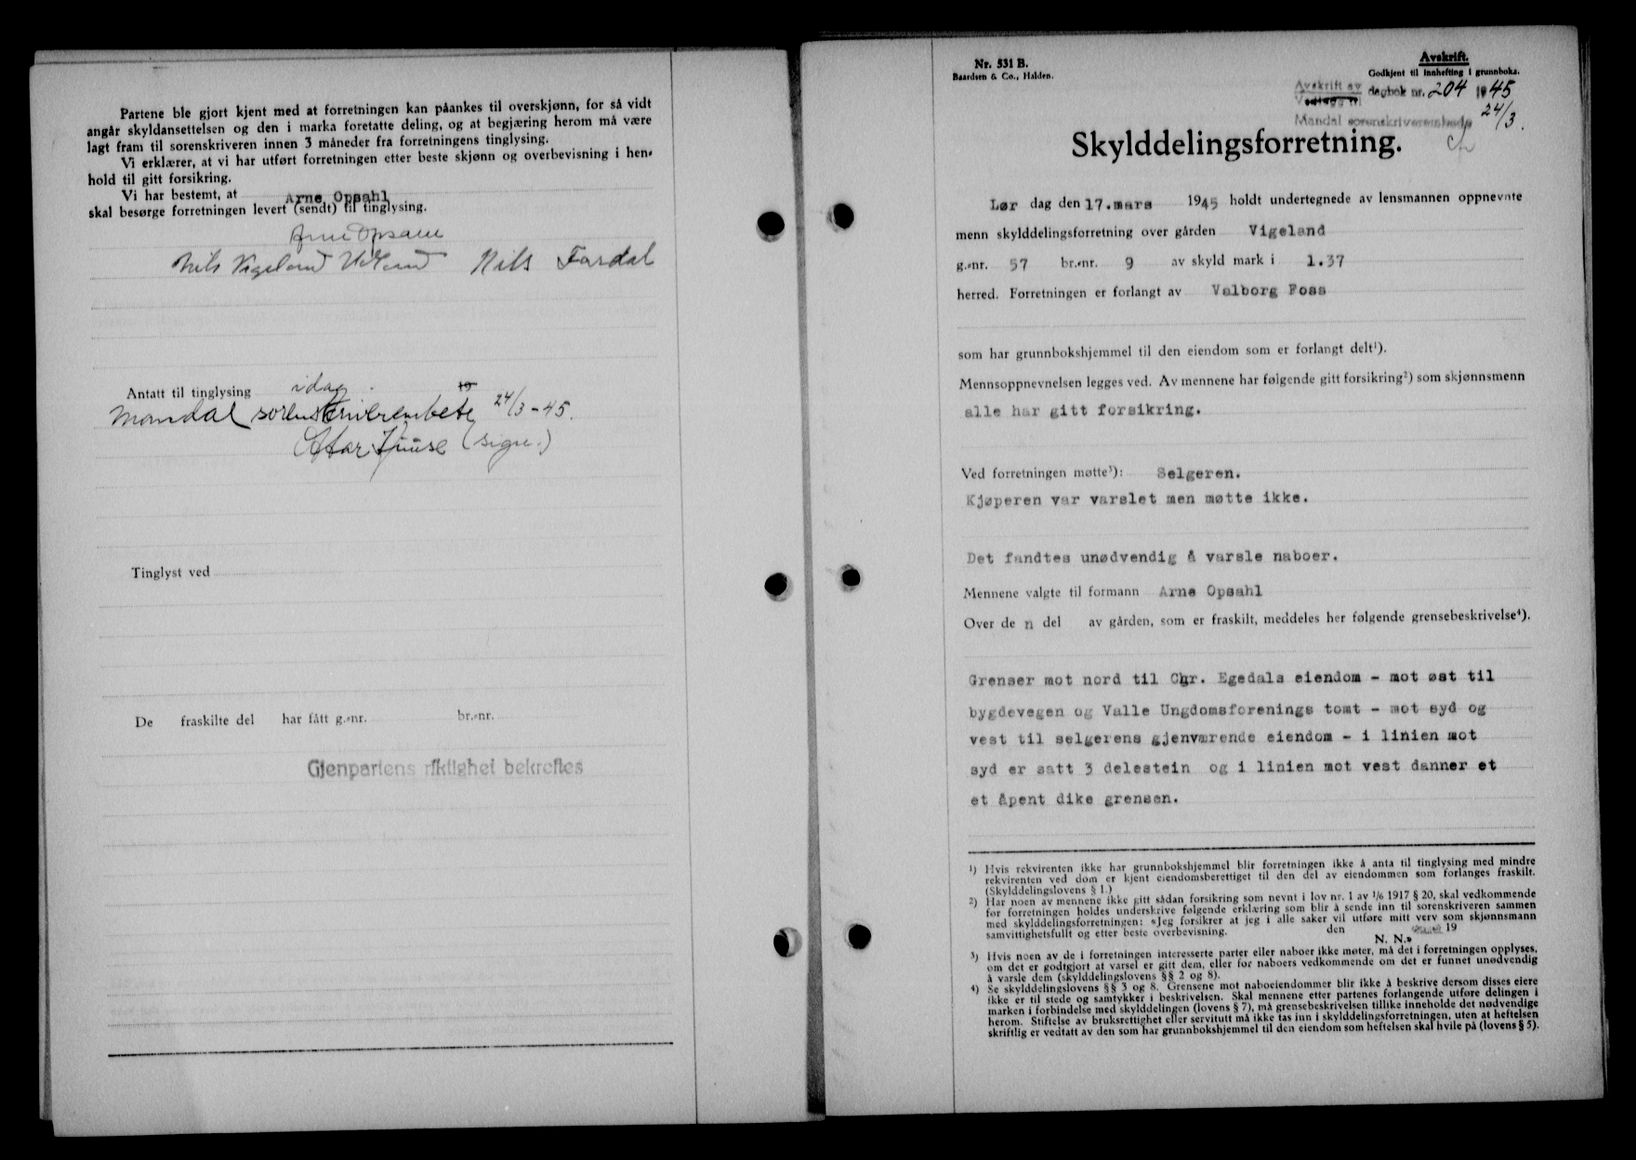 Partene ble gjort kjent med at forretningen kan påankes til overskjønn, for så vidt
angår skyldansettelsen og den i marka foretatte deling, og at begjæring herom må være
lagt fram til sorenskriveren innen 3 måneder fra forretningens tinglysing.
Vi erklærer, at vi har utført forretningen etter beste skjønn og overbevisning i hen-
hold til gitt forsikring.
Vi har bestemt, at Arne Opsahl
skal besørge forretningen levert (sendt) til tinglysing.
Arne Opsahl
Nils Vigeland Nils Fardal
Antatt til tinglysing idag. 19
Mandal sorenskriverembete 24/3-45.
(sign.)
Tinglyst ved
De fraskilte del har fått g.nr. br.nr.
Gjenpartens riktighet bekreftes
Nr. 531 B.
Baardsen & Co., Halden.
Avskrift.
Godkjent til innhefting i grunnboka.
Avskrift av dagbok nr. 204 1945
Mandal sorenskriverembede 24/3.
Skylddelingsforretning.
Lør dag den 17. mars 1945 holdt undertegnede av lensmannen oppnevnte
menn skylddelingsforretning over gården Vigeland
g.nr. 57 br.nr. 9 av skyld mark i 1.37
herred. Forretningen er forlangt av Valborg Foss
som har grunnbokshjemmel til den eiendom som er forlangt delt¹).
Mennsoppnevnelsen legges ved. Av mennene har følgende gitt forsikring²) som skjønnsmenn
alle har gitt forsikring.
Ved forretningen møtte³): Selgeren.
Kjøperen var varslet men møtte ikke.
Det fandtes unødvendig å varsle naboer.
Mennene valgte til formann Arne Opsahl
Over de n del av gården, som er fraskilt, meddeles her følgende grensebeskrivelse⁴).
Grenser mot nord til Chr. Egedals eiendom - mot øst til
bygdevegen og Valle Ungdomsforenings tomt - mot syd og
vest til selgerens gjenværende eiendom - i linien mot
syd er satt 3 delestein og i linien mot vest danner et
et åpent dike grensen.
¹) Hvis rekvirenten ikke har grunnbokshjemmel blir forretningen ikke å anta til tinglysing med mindre
rekvirenten ved dom er kjent eiendomsberettiget til den del av eiendommen som forlanges fraskilt.
(Skylddelingslovens § 1.)
²) Har noen av mennene ikke gitt sådan forsikring som nevnt i lov nr. 1 av 1/6 1917 § 20, skal vedkommende
før forretningen holdes underskrive følgende erklæring som blir å sende inn til sorenskriveren sammen
med skylddelingsforretningen: «Jeg forsikrer at jeg i alle saker vil utføre mitt verv som skjønnsmann
samvittighetsfullt og etter beste overbevisning. den 19
N. N.»
³) Hvis noen av de i forretningen interesserte parter eller naboer ikke møter, må det i forretningen opplyses,
om det er godtgjort at varsel er gitt dem, eller for naboers vedkommende om det er funnet unødvendig
å varsle dem (skylddelingslovens §§ 2 og 8).
⁴) Se skylddelingslovens §§ 3 og 8. Grensene mot naboeiendommer blir ikke å beskrive dersom disses eiere
ikke er til stede og samtykker i beskrivelsen. Skal mennene etter partenes forlangende utføre delingen i
marken i forbindelse med skylddelingen (lovens § 7), må grensebeskrivelsen tillike inneholde det nødvendige
herom. Stiftelse av bruksrettighet eller servitutt må ikke tas inn i skylddelingsforretningen, uten at heftelsen
skriftlig er vedtatt av den som har grunnbokshjemmel til den eiendom som heftelsen skal hvile på (lovens § 5).